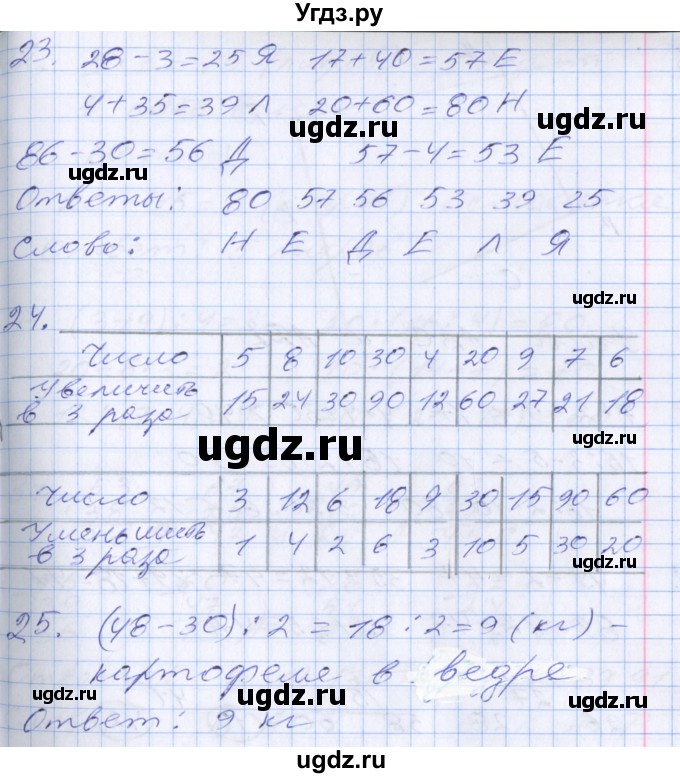 Угдз.ру
23. 28-3=25 Я 17+40=57 Е
4+35=39 Л 20+60=80 Н
ugdz.ru ugdz.ru
86-30=56 Д 57-4=53 Е
ugdz.ru ugdz.ru
Ответы: 80 57 56 53 39 25
Слово: Н Е Д Е Л Я
ugdz.ru
24.
ugdz.ru
Число 5 8 10 30 4 20 9 7 6
Увеличить в 3 раза 15 24 30 90 12 60 27 21 18
ugdz.ru ugdz.ru
Число 3 12 6 18 9 30 15 90 60
Уменьшить в 3 раза 1 4 2 6 3 10 5 30 20
ugdz.ru ugdz.ru
25. (48-30):2=18:2=9 (кг) -
картофеля в ведре
ugdz.ru ugdz.ru
Ответ: 9 кг
ugdz.ru